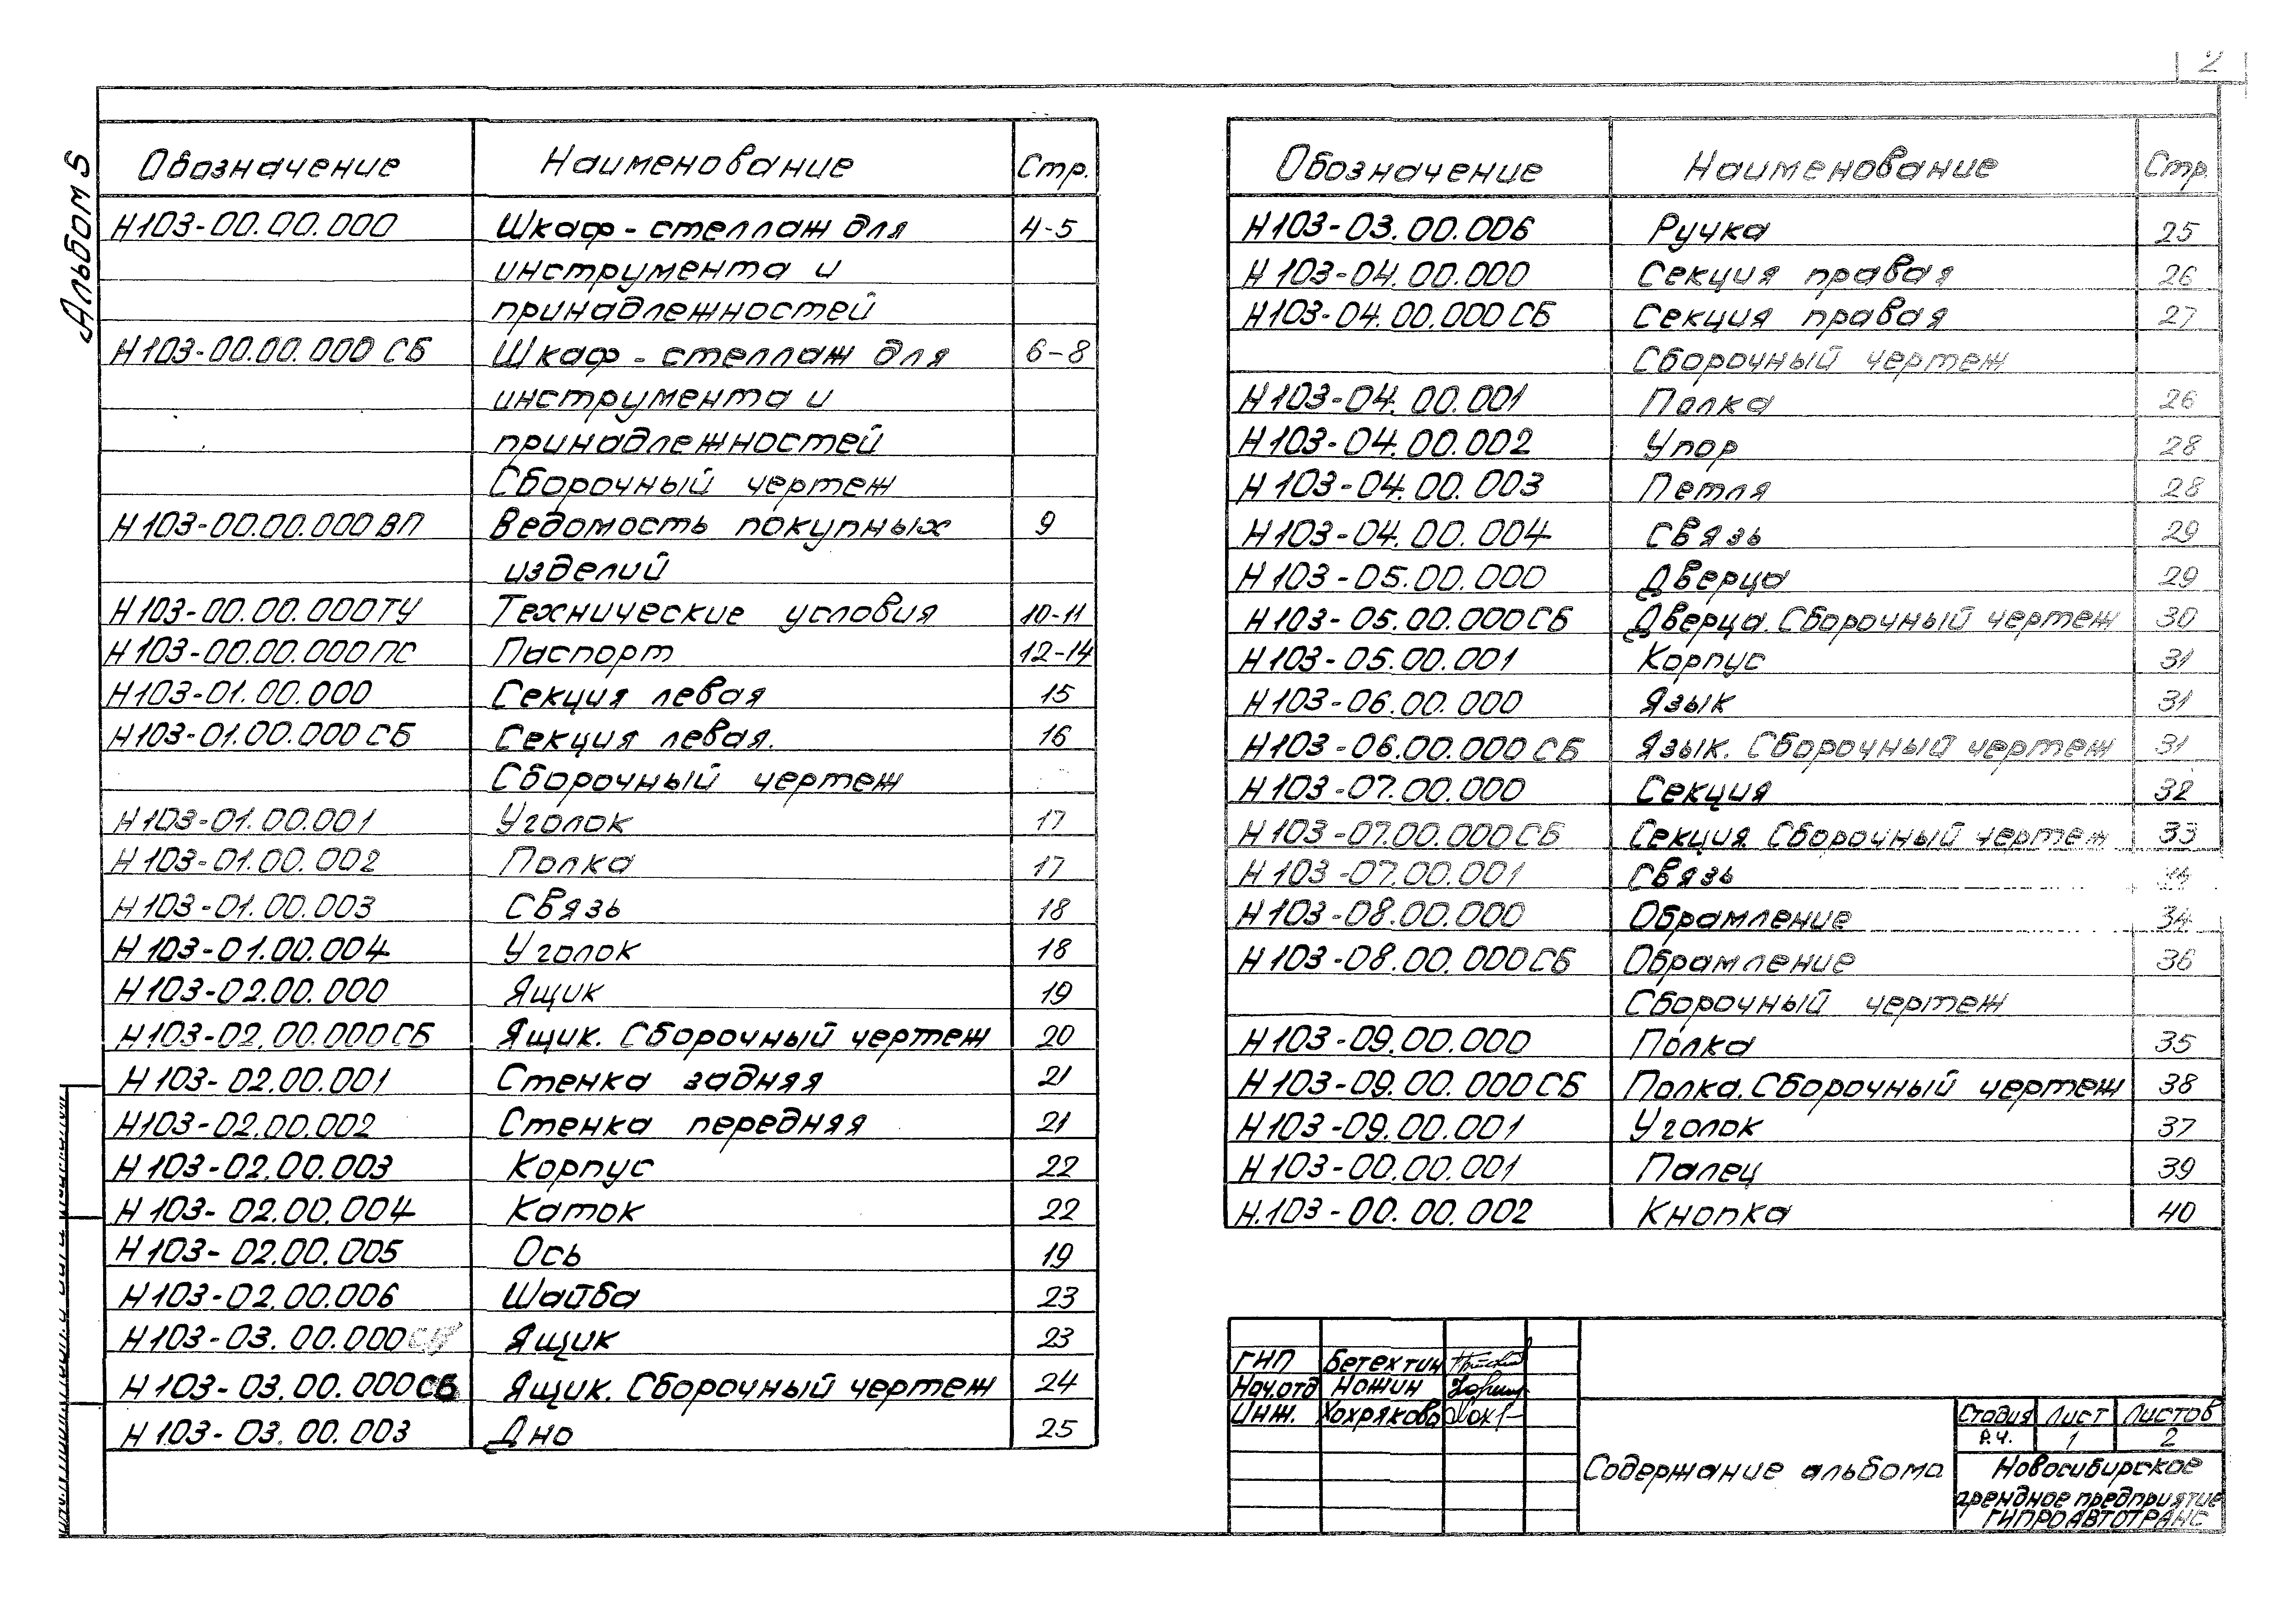 2
Альбом 5
Обозначение Наименование Стр.
Н103-00.00.000 Шкаф-стеллаж для 4-5
инструмента и
принадлежностей
Н103-00.00.000 СБ Шкаф-стеллаж для 6-8
инструмента и
принадлежностей
Сборочный чертеж
Н103-00.00.000 ВП Ведомость покупных 9
изделий
Н103-00.00.000ТУ Технические условия 10-11
Н103-00.00.000ПС Паспорт 12-14
Н103-01.00.000 Секция левая 15
Н103-01.00.000 СБ Секция левая. 16
Сборочный чертеж
Н103-01.00.001 Уголок 17
Н103-01.00.002 Полка 17
Н103-01.00.003 Связь 18
Н103-01.00.004 Уголок 18
Н103-02.00.000 Ящик 19
Н103-02.00.000СБ Ящик. Сборочный чертеж 20
Н103-02.00.001 Стенка задняя 21
Н103-02.00.002 Стенка передняя 21
Н103-02.00.003 Корпус 22
Н103-02.00.004 Каток 22
Н103-02.00.005 Ось 19
Н103-02.00.006 Шайба 23
Н103-03.00.000 Ящик 23
Н103-03.00.000СБ Ящик. Сборочный чертеж 24
Н103-03.00.003 Дно 25
Обозначение Наименование Стр.
Н103-03.00.006 Ручка 25
Н103-04.00.000 Секция правая 26
Н103-04.00.000 СБ Секция правая 27
Сборочный чертеж
Н103-04.00.001 Полка 26
Н103-04.00.002 Упор 28
Н103-04.00.003 Петля 28
Н103-04.00.004 Связь 29
Н103-05.00.000 Дверца 29
Н103-05.00.000СБ Дверца. Сборочный чертеж 30
Н103-05.00.001 Корпус 31
Н103-06.00.000 Язык 31
Н103-06.00.000 СБ Язык. Сборочный чертеж 31
Н103-07.00.000 Секция 32
Н103-07.00.000СБ Секция. Сборочный чертеж 33
Н103-07.00.001 Связь
Н103-08.00.000 Обрамление 34
Н103-08.00.000СБ Обрамление 36
Сборочный чертеж
Н103-09.00.000 Полка 35
Н103-09.00.000СБ Полка. Сборочный чертеж 38
Н103-09.00.001 Уголок 37
Н103-00.00.001 Палец 39
Н.103-00.00.002 Кнопка 40
ГИП Бетехтин
Нач.отд Ножин
Инж. Хохрякова
Содержание альбома
Стадия Лист Листов
Р.Ч. 1 2
Новосибирское
арендное предприятие
ГИПРОАВТОТРАНС